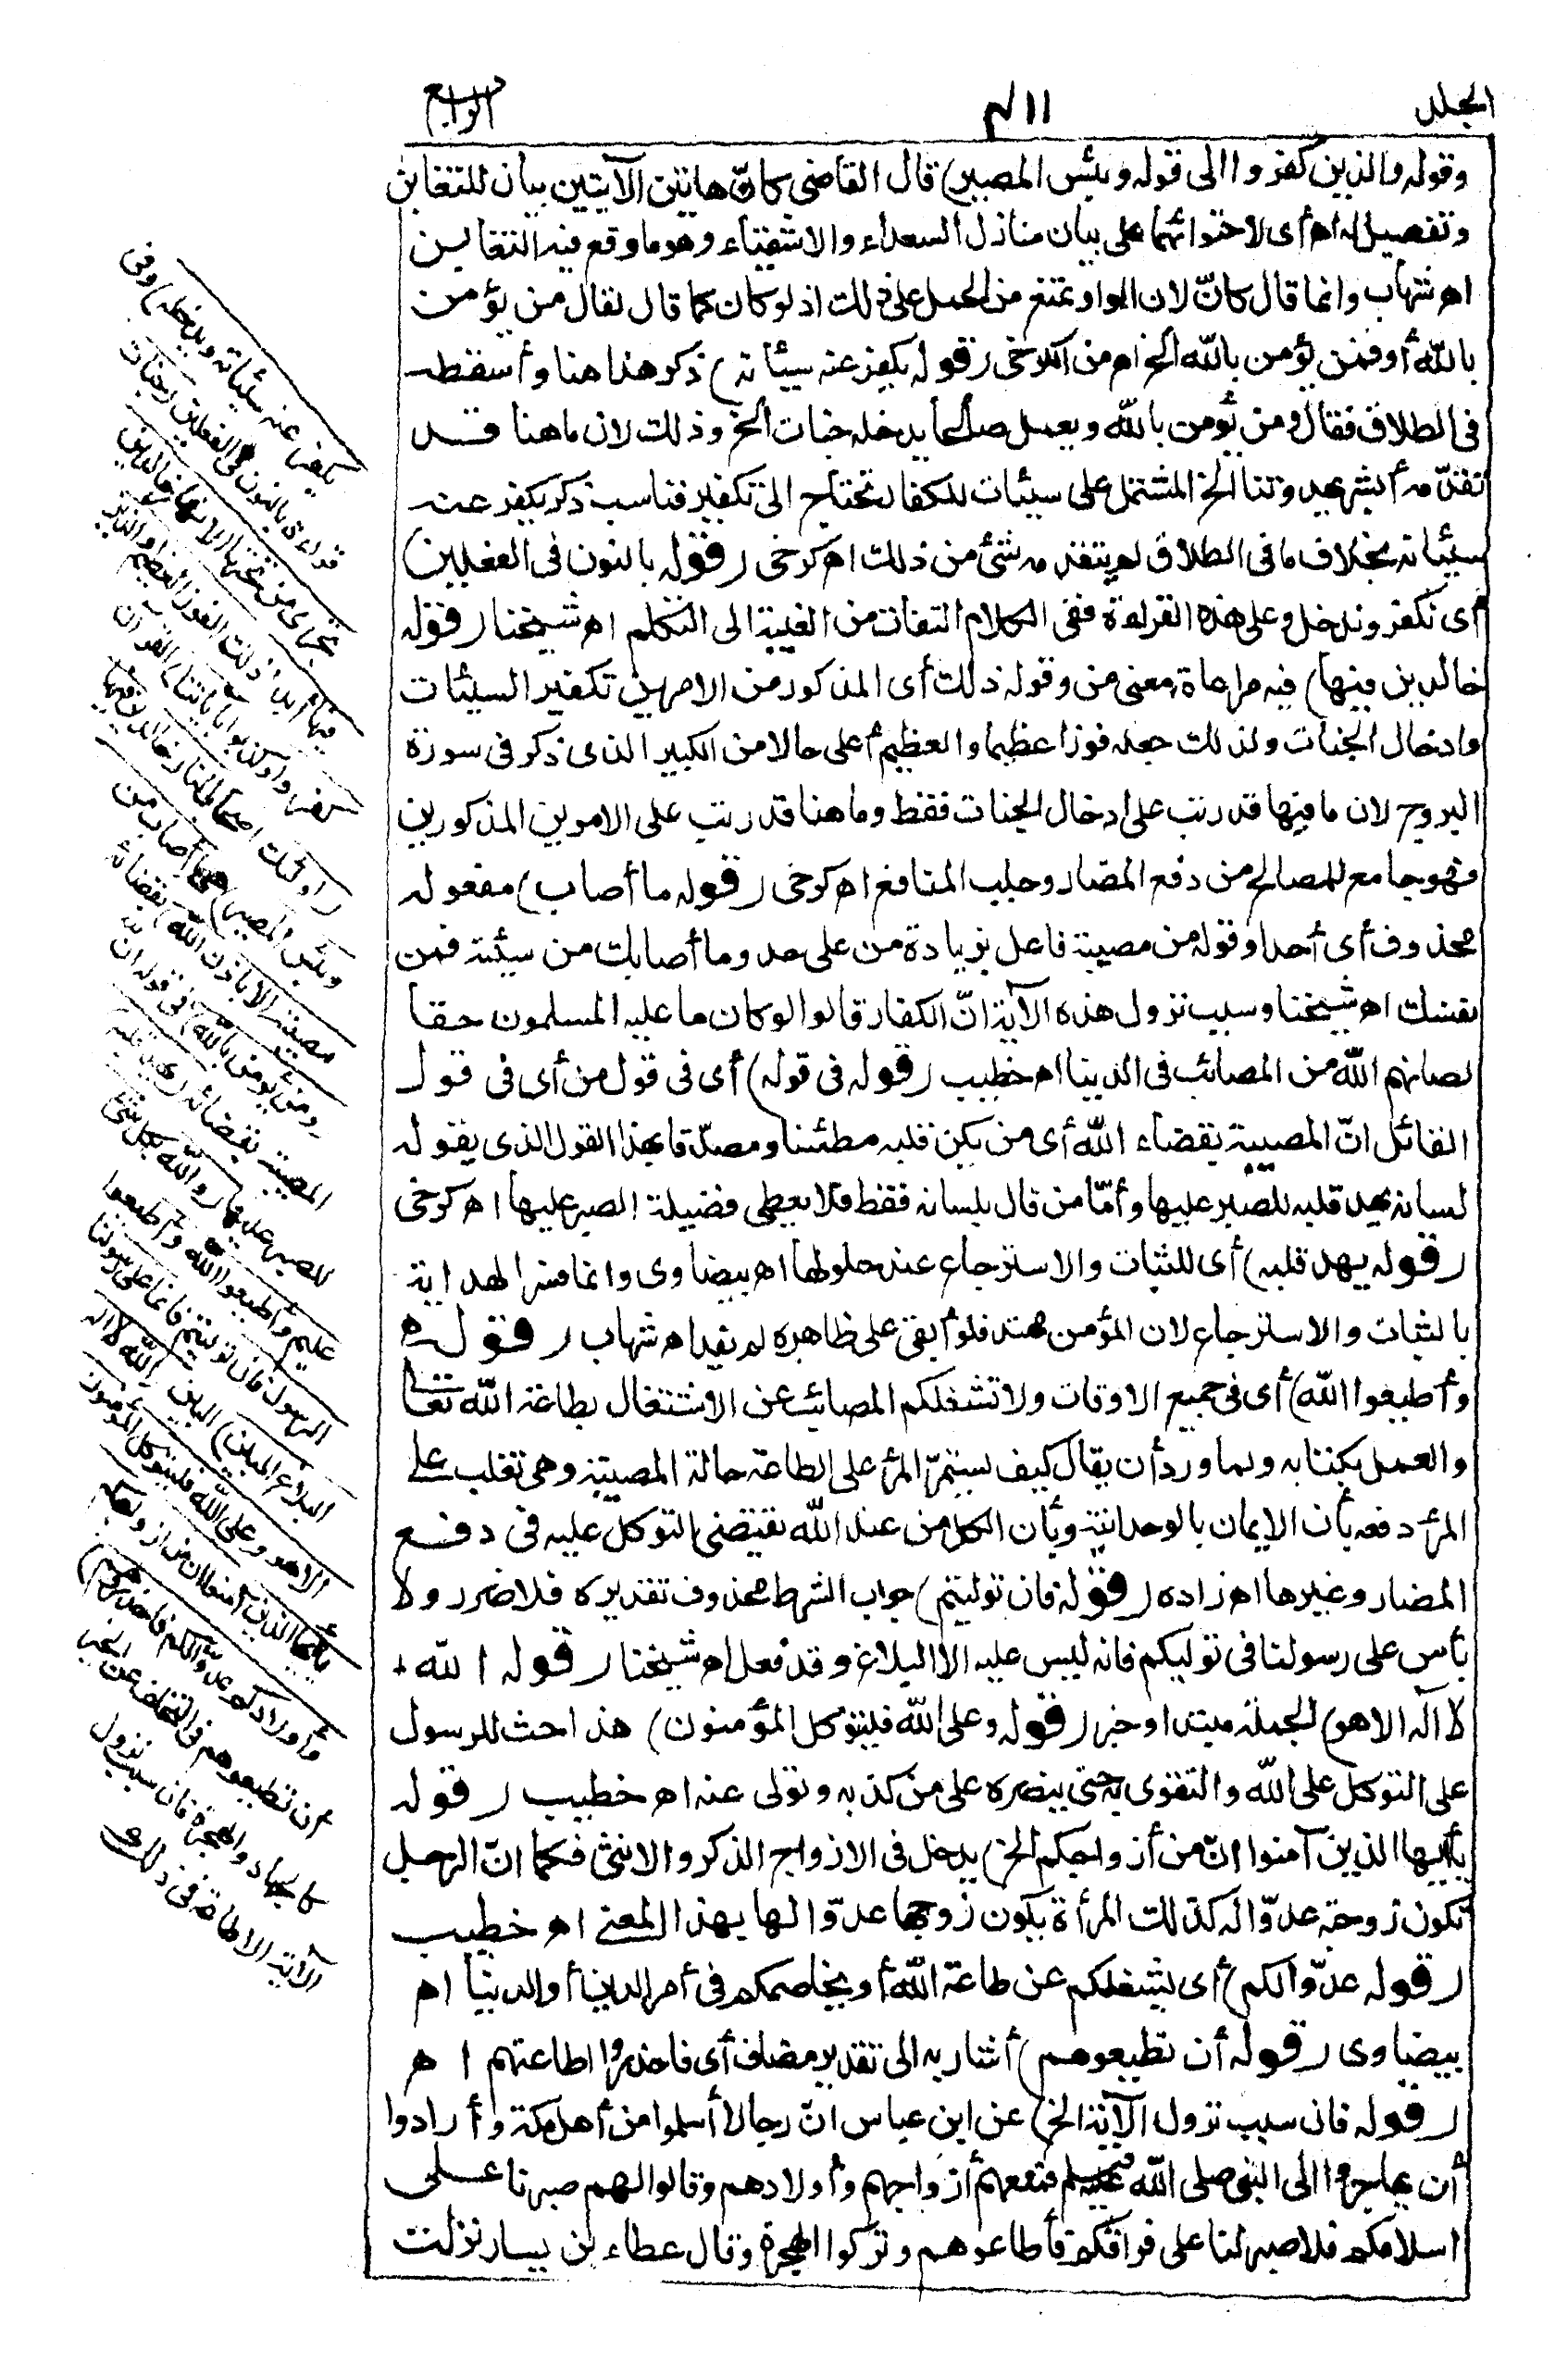 الجلد
٤١١
الرابع
وقوله والذين كفروا الى قوله وبئس المصير) قال القاضى كانّ هاتين الآيتين بيان للتغابن
وتفصيل له اه أى لاحتوائهما على بيان منازل السعداء والاشقياء وهو ما وقع فيه التغابن
اه شهاب وانما قال كانّ لان الواو تمنع من الحمل على ذلك اذ لو كان كما قال لقال من يؤمن
بالله أو فمن يؤمن بالله الخ اه من الكرخى (قوله يكفر عنه سيئاته) ذكر هذا هنا وأسقطه
فى الطلاق فقال ومن يؤمن بالله ويعمل صالحا يدخله جنات الخ وذلك لان ما هنا قد
تقدّمه أبشر يهدوننا الخ المشتمل على سيئات للكفار تحتاج الى تكفير فناسب ذكر يكفر عنه
سيئاته بخلاف ما فى الطلاق لم يتقدمه شئ من ذلك اه كرخى (قوله بالنون فى الفعلين)
أى نكفر وندخل وعلى هذه القراءة ففى الكلام التفات من الغيبة الى التكلم اه شيخنا (قوله
خالدين فيها) فيه مراعاة معنى من وقوله ذلك أى المذكور من الامرين تكفير السيئات
وادخال الجنات ولذلك جعله فوزا عظيما والعظيم أعلى حالا من الكبير الذى ذكر فى سورة
البروج لان ما فيها قد رتب على ادخال الجنات فقط وما هنا قد رتب على الامرين المذكورين
فهو جامع للمصالح من دفع المضار وجلب المنافع اه كرخى (قوله ما أصاب) مفعوله
محذوف أى أحدا وقوله من مصيبة فاعل بزيادة من على حد وما أصابك من سيئة فمن
نفسك اه شيخنا وسبب نزول هذه الآية انّ الكفار قالوا لو كان ما عليه المسلمون حقا
لصانهم الله من المصائب فى الدنيا اه خطيب (قوله فى قوله) أى فى قول من أى فى قول
القائل انّ المصيبة بقضاء الله أى من يكن قلبه مطمئنا ومصدّقا بهذا القول الذى يقوله
لسانه يهد قلبه للصبر عليها وأمّا من قال بلسانه فقط فلا يعطى فضيلة الصبر عليها اه كرخى
(قوله يهد قلبه) أى للثبات والاسترجاع عند حلولها اه بيضاوى وانما فسر الهداية
بالثبات والاسترجاع لان المؤمن مهتد فلو أبقى على ظاهره لم يفد اه شهاب (قوله
وأطيعوا الله) أى فى جميع الاوقات ولا تشغلكم المصائب عن الاشتغال بطاعة الله تعا
والعمل بكتابه ولما ورد أن يقال كيف يستمرّ المرء على الطاعة حالة المصيبة وهى تقلب على
المرء دفعه بأن الايمان بالوحدانية وبأن الكل من عند الله يقتضى التوكل عليه فى دفع
المضار وغيرها اه زاده (قوله فان توليتم) جواب الشرط محذوف تقديره فلا ضرر ولا
بأس على رسولنا فى توليكم فانه ليس عليه الا البلاغ وقد فعل اه شيخنا (قوله الله
لا اله الا هو) الجملة مبتدا وخبر (قوله وعلى الله فليتوكل المؤمنون) هذا حث للرسول
على التوكل على الله والتقوى به حتى ينصره على من كذبه وتولى عنه اه خطيب (قوله
يأيها الذين آمنوا انّ من أزواجكم الخ) يدخل فى الازواج الذكر والانثى فكما انّ الرجل
تكون زوجته عدوّا له كذلك المرأة يكون زوجها عدوّا لها بهذا المعنى اه خطيب
(قوله عدوّا لكم) أى يشغلكم عن طاعة الله أو يخاصمكم فى أمر الدين أو الدنيا اه
بيضاوى (قوله أن تطيعوهم) أشار به الى تقدير مضاف أى فاحذروا اطاعتهم اه
(قوله فان سبب نزول الآية الخ) عن ابن عباس انّ رجالا أسلموا من أهل مكة وأرادوا
أن يهاجروا الى النبى صلى الله عليه وسلم فمنعهم أزواجهم وأولادهم وقالوا لهم صبرنا على
اسلامكم فلا صبر لنا على فراقكم فأطاعوهم وتركوا الهجرة وقال عطاء بن يسار نزلت
يكفر عنه سيئاته ويدخله) وفى
قراءة بالنون فى الفعلين (جنات
تجرى من تحتها الانهار خالدين
فيها أبدا ذلك الفوز العظيم والذين
كفروا وكذبوا بآياتنا) القرآن
(أولئك اصحاب النار خالدين فيها
وبئس المصير) هى (ما أصاب من
مصيبة الا باذن الله) بقضائه
(ومن يؤمن بالله) فى قوله انّ
المصيبة بقضائه (يهد قلبه)
للصبر عليها (والله بكل شئ
عليم وأطيعوا الله وأطيعوا
الرسول فان توليتم فانما على رسولنا
البلاغ المبين) البين (الله لا اله
الا هو وعلى الله فليتوكل المؤمنون
يأيها الذين آمنوا ان من أزواجكم
وأولادكم عدوّا لكم فاحذروهم)
أن تطيعوهم فى التخلف عن الخير
كالجهاد والهجرة فان سبب نزول
الآية الاطاعة فى ذلك